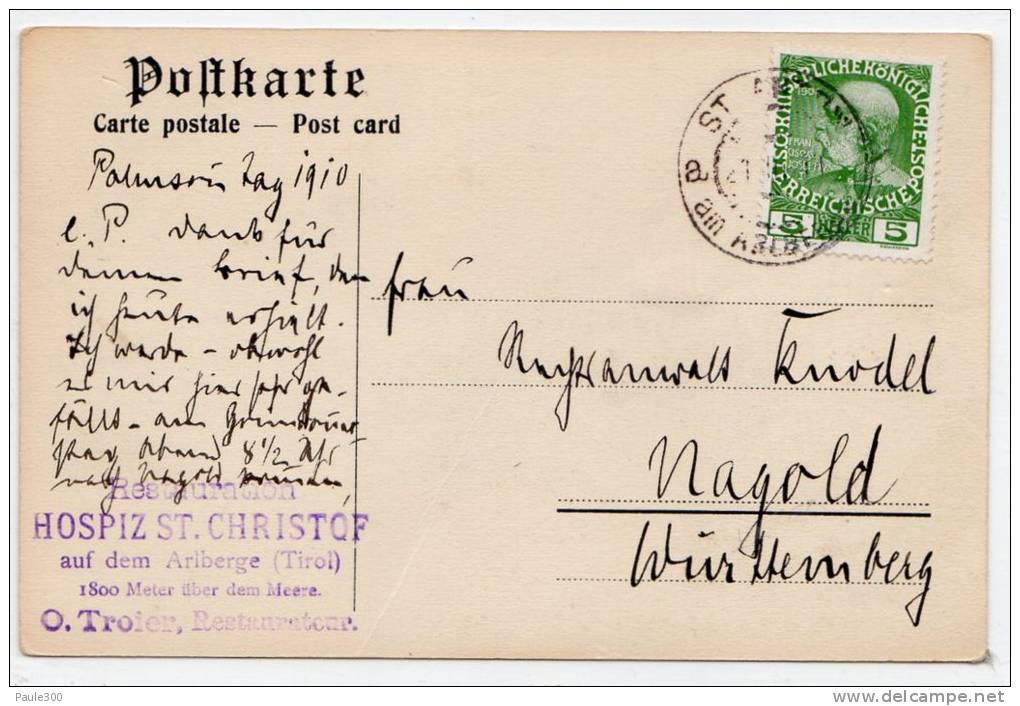 Postkarte
Carte postale — Post card
Palmsonntag 1910
L. P. Dank für
deinen Brief, den
ich heute erhielt.
Ich werde – obwohl
es mir hier sehr ge-
fällt – am Gründonners-
tag Abend 8 1/2 Uhr
nach Nagold kommen,
Restauration
HOSPIZ ST. CHRISTOF
auf dem Arlberge (Tirol)
1800 Meter über dem Meere.
O. Troier, Restaurateur.
ST.
am ARLBE
5 HELLER 5
Frau
Rechtsanwalt Knodel
Nagold
Württemberg
Paule300
delcampe.net